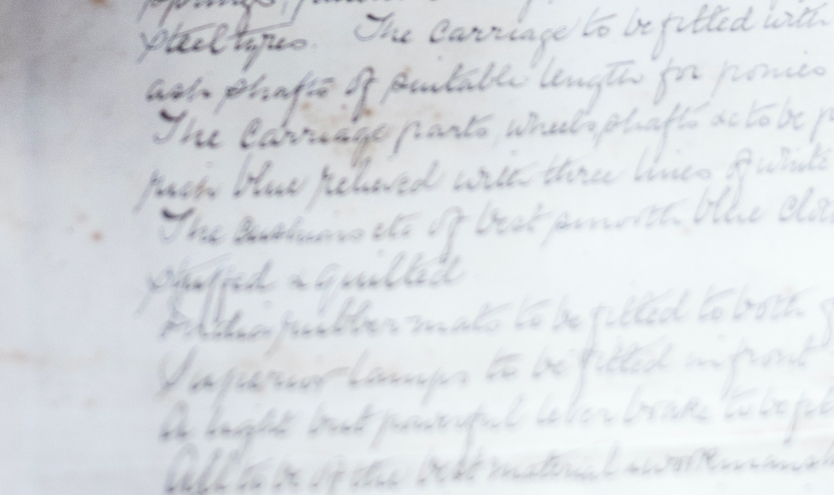 springs,
steel tyres. The Carriage to be fitted with
ash shafts of suitable length for ponies
The Carriage parts, wheels shafts &c to be
rich blue relieved with three lines of white
The cushions etc of best smooth blue
stuffed & quilted
India rubber mats to be fitted to both
Superior lamps to be fitted in front
A light but powerful lever brake to be
All to be of the best material & workmans